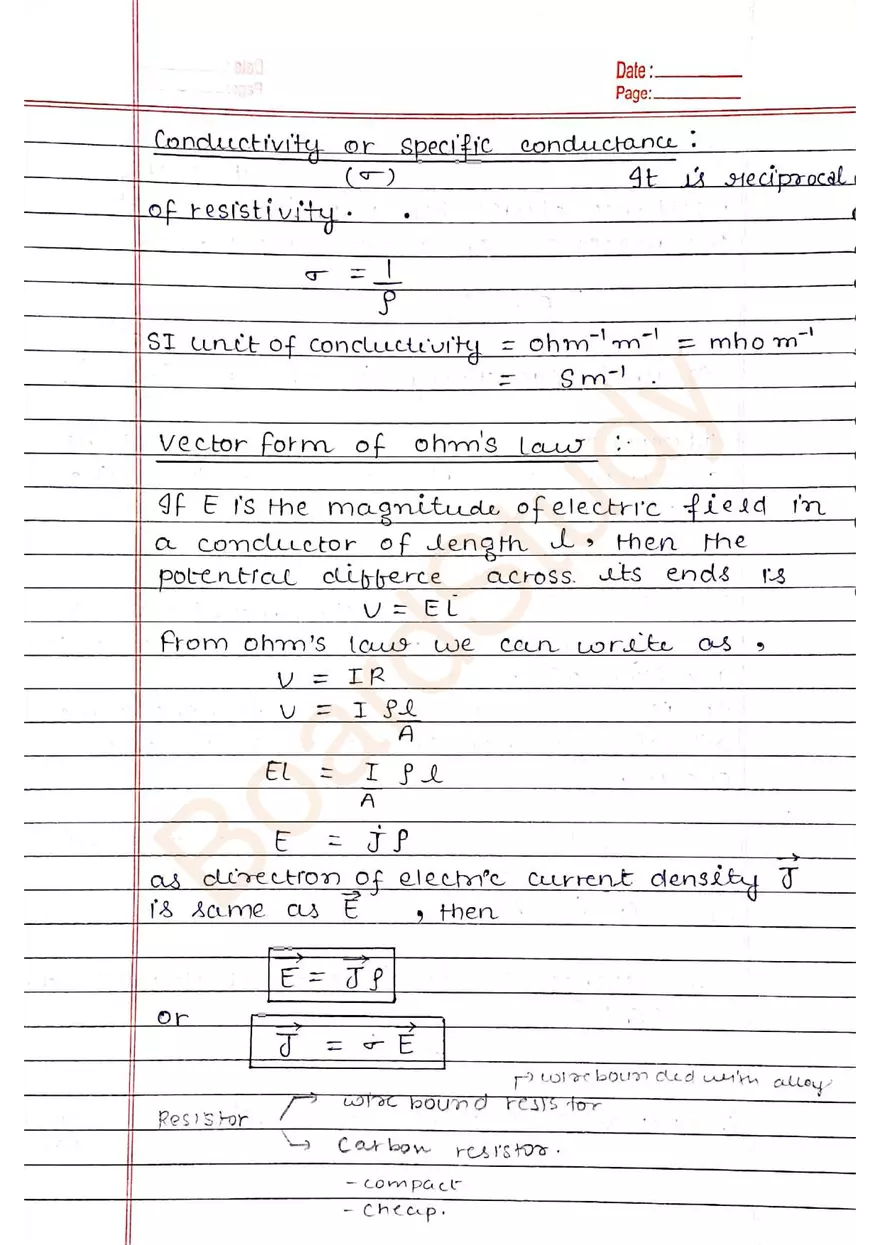 Date:
Page:
Conductivity or specific conductance :
(σ) It is reciprocal
of resistivity.
σ = 1
ρ
SI unit of conductivity = ohm⁻¹m⁻¹ = mho m⁻¹
= Sm⁻¹.
Vector form of ohm's law :-
If E is the magnitude of electric field in
a conductor of length l, then the
potential differce across its ends is
V = El
From ohm's law we can write as,
V = IR
V = I ρl
A
El = I ρ l
A
E = Jρ
as direction of electric current density J⃗
is same as E⃗ , then
E⃗ = J⃗ρ
or
J⃗ = σ E⃗
→ wire bounded with alloy
Resistor → wire bound resistor
→ Carbon resistor.
- compact
- Cheap.
BoardStudy